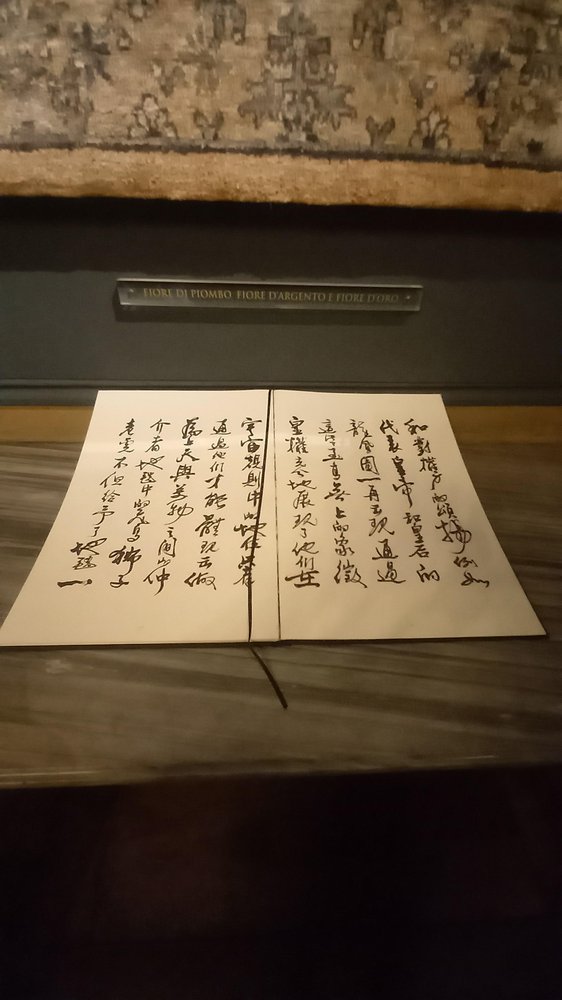 FIORE DI PIOMBO, FIORE D'ARGENTO E FIORE D'ORO
和對權力的頌揚例如
代表皇帝和皇后的
龍鳳圖一再出現通過
這至高無上的象徵
皇權充分地展現了他們在
宇宙規則中的地位
通過他們才能體現出做
為上天與萬物之間的仲
介者地毯中的鳥獅子
不但給予了地毯一